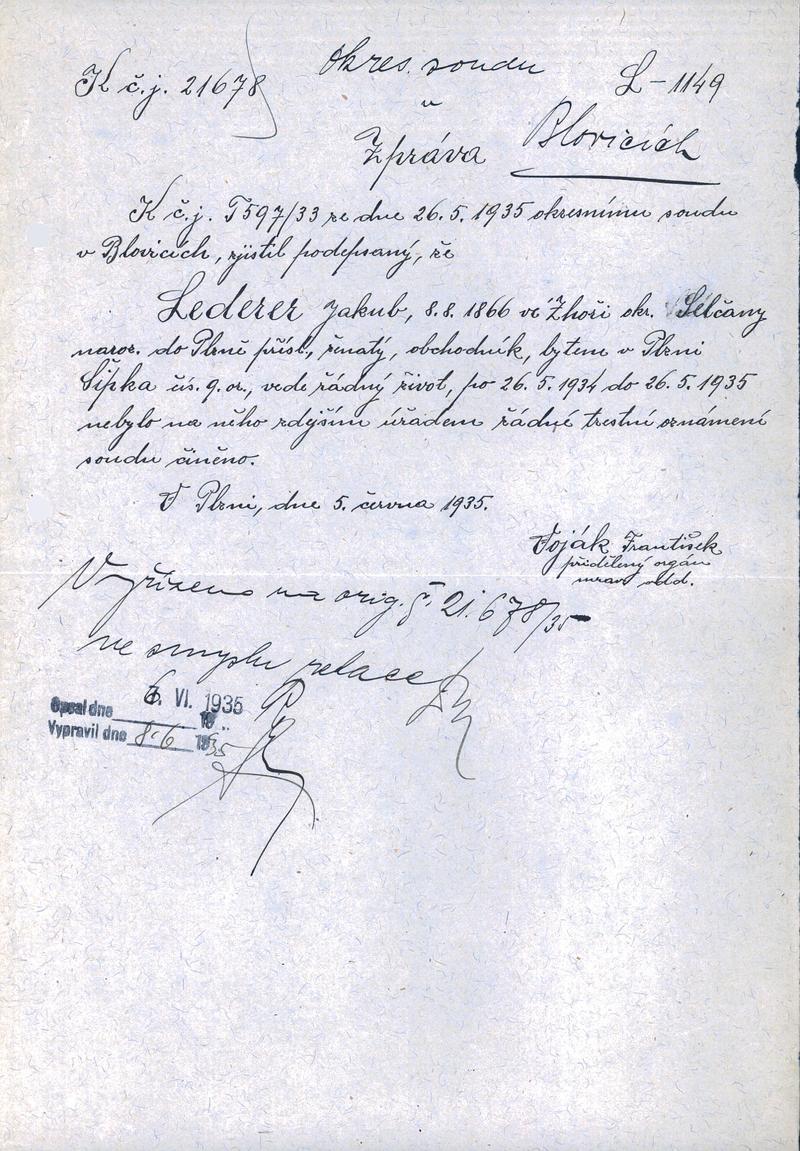 K č.j. 21678
okres. soudu
L - 1149
v
Zpráva
Blovicích
K č.j. T597/33 ze dne 26.5.1935 okresnímu soudu
v Blovicích, zjistil podepsaný, že
Lederer Jakub, 8.8.1866 ve Zhoři okr. Selčany
naroz. do Plzně přísl., ženatý, obchodník, bytem v Plzni
Šípka čís. 9. or., vede řádný život, po 26.5.1934 do 26.5.1935
nebylo na něho zdejším úřadem řádné trestní oznámení
soudu činěno.
V Plzni, dne 5. června 1935.
Voják František
přidělený orgán
mrav. odd.
Vyřízeno na orig. č. 21.678/35
ve smyslu relace
6. VI. 1935
Opsal dne 19
Vypravil dne 8.6 1935